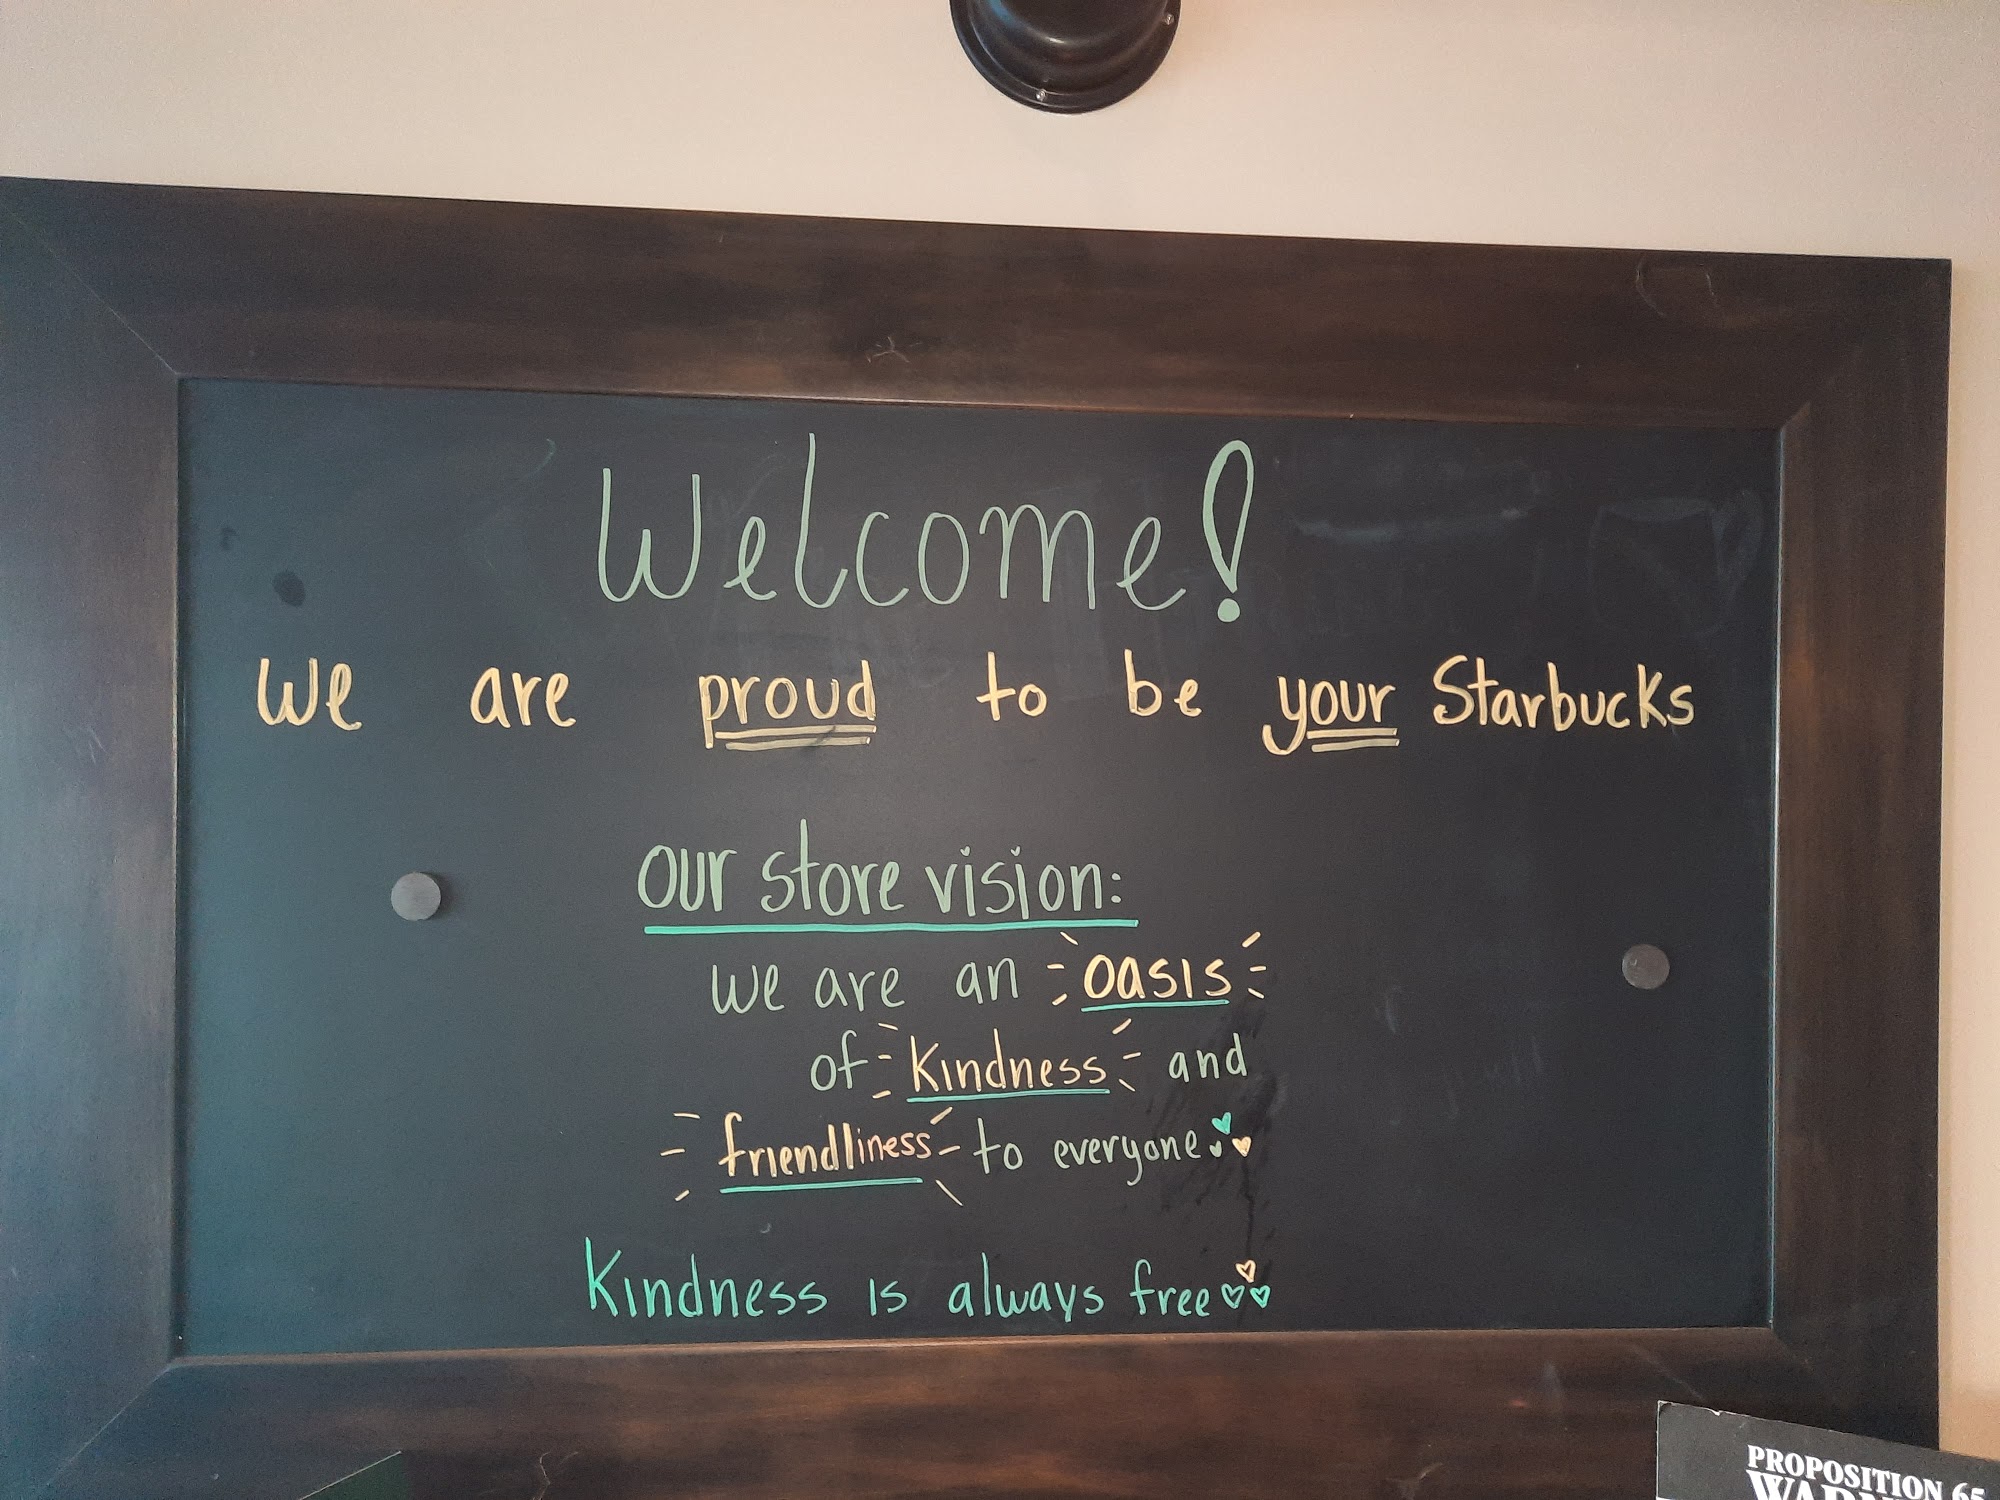 Welcome!
We are proud to be your Starbucks
our store vision:
we are an oasis
of kindness and
friendliness to everyone
Kindness is always free
PROPOSITION 65